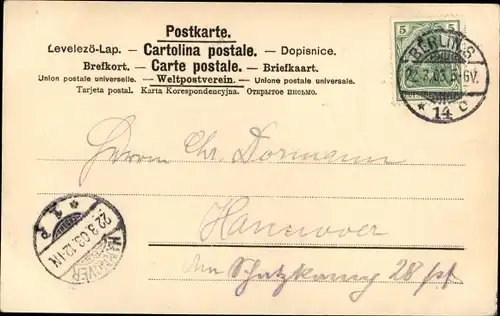 Postkarte.
Levelező-Lap. — Cartolina postale. — Dopisnice.
Brefkort. — Carte postale. — Briefkaart.
Union postale universelle. — Weltpostverein. — Unione postale universale.
Tarjeta postal. Karta Korespondencyjna. Открытое письмо.
5 5
BERLIN S
22.3.03. 5-6V.
* 14 c
Herrn Chr. Dormann
Hannover
Am Schatzkamp 28 pt
HANNOVER
22.3.03. 12-1N
* 1 P